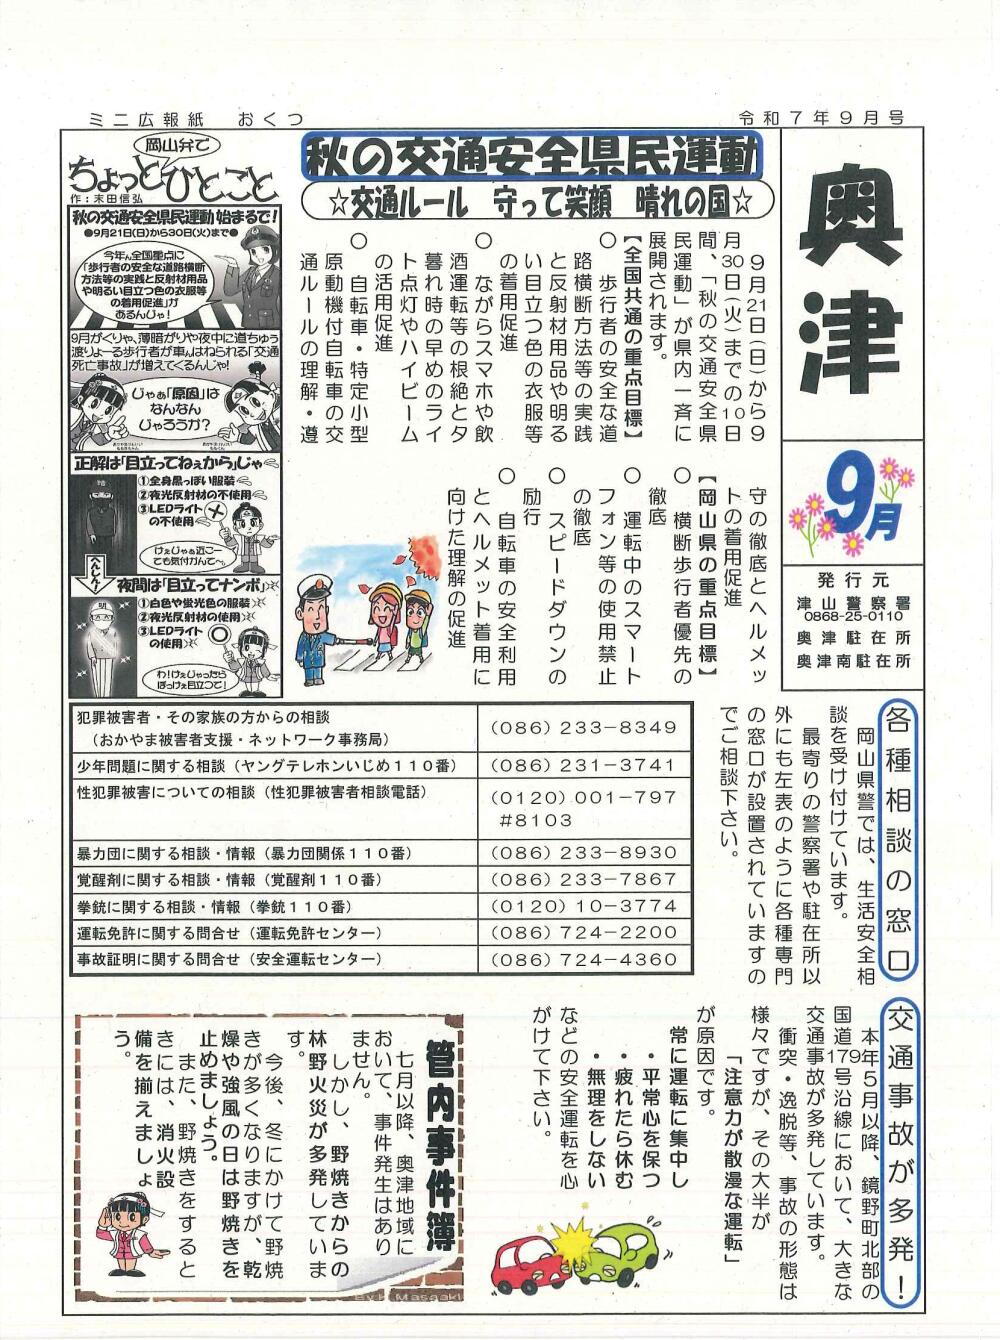 ミニ広報紙　おくつ
令和７年９月号
奥津
9月
発行元
津山警察署
0868-25-0110
奥津駐在所
奥津南駐在所
秋の交通安全県民運動
☆交通ルール　守って笑顔　晴れの国☆
９月21日(日)から９
月30日(火)までの10日
間、「秋の交通安全県
民運動」が県内一斉に
展開されます。
【全国共通の重点目標】
○　歩行者の安全な道
路横断方法等の実践
と反射材用品や明る
い目立つ色の衣服等
の着用促進
○　ながらスマホや飲
酒運転等の根絶と夕
暮れ時の早めのライ
ト点灯やハイビーム
の活用促進
○　自転車・特定小型
原動機付自転車の交
通ルールの理解・遵
守の徹底とヘルメッ
トの着用促進
【岡山県の重点目標】
○　横断歩行者優先の
徹底
○　運転中のスマート
フォン等の使用禁止
の徹底
○　スピードダウンの
励行
○　自転車の安全利用
とヘルメット着用に
向けた理解の促進
岡山弁で
ちょっとひとこと
作：末田信弘
秋の交通安全県民運動 始まるで！
●9月21日(日)から30日(火)まで●
今年ん全国重点に
「歩行者の安全な道路横断
方法等の実践と反射材用品
や明るい目立つ色の衣服等
の着用促進」が
あるんじゃ！
9月がくりゃ、薄暗がりや夜中に道ちゅう
渡りょーる歩行者が車んはねられる「交通
死亡事故」が増えてくるんじゃ！
じゃぁ「原因」は
なんなん
じゃろうか？
正解は「目立ってねぇから」じゃ
①全身黒っぽい服装
②夜光反射材の不使用
③LEDライト
の不使用
けぇじゃぁ近こー
ても気付かんで～
へんしん！
夜間は「目立ってナンボ」
①白色や蛍光色の服装
②夜光反射材の使用
③LEDライト
の使用
わ！けぇじゃったら
ぼっけぇ目立つで！
各種相談の窓口
岡山県警では、生活安全相
談を受け付けています。
最寄りの警察署や駐在所以
外にも左表のように各種専門
の窓口が設置されていますの
でご相談下さい。
犯罪被害者・その家族の方からの相談
（おかやま被害者支援・ネットワーク事務局）
(086)233-8349
少年問題に関する相談（ヤングテレホンいじめ１１０番）
(086)231-3741
性犯罪被害についての相談（性犯罪被害者相談電話）
(0120)001-797
#8103
暴力団に関する相談・情報（暴力団関係１１０番）
(086)233-8930
覚醒剤に関する相談・情報（覚醒剤１１０番）
(086)233-7867
拳銃に関する相談・情報（拳銃１１０番）
(0120)10-3774
運転免許に関する問合せ（運転免許センター）
(086)724-2200
事故証明に関する問合せ（安全運転センター）
(086)724-4360
交通事故が多発！
本年５月以降、鏡野町北部の
国道179号沿線において、大きな
交通事故が多発しています。
衝突・逸脱等、事故の形態は
様々ですが、その大半が
「注意力が散漫な運転」
が原因です。
常に運転に集中し
・平常心を保つ
・疲れたら休む
・無理をしない
などの安全運転を心
がけて下さい。
管内事件簿
七月以降、奥津地域に
おいて、事件発生はあり
ません。
しかし、野焼きからの
林野火災が多発していま
す。
今後、冬にかけて野焼
きが多くなりますが、乾
燥や強風の日は野焼きを
止めましょう。
また、野焼きをすると
きには、消火設
備を揃えましょ
う。